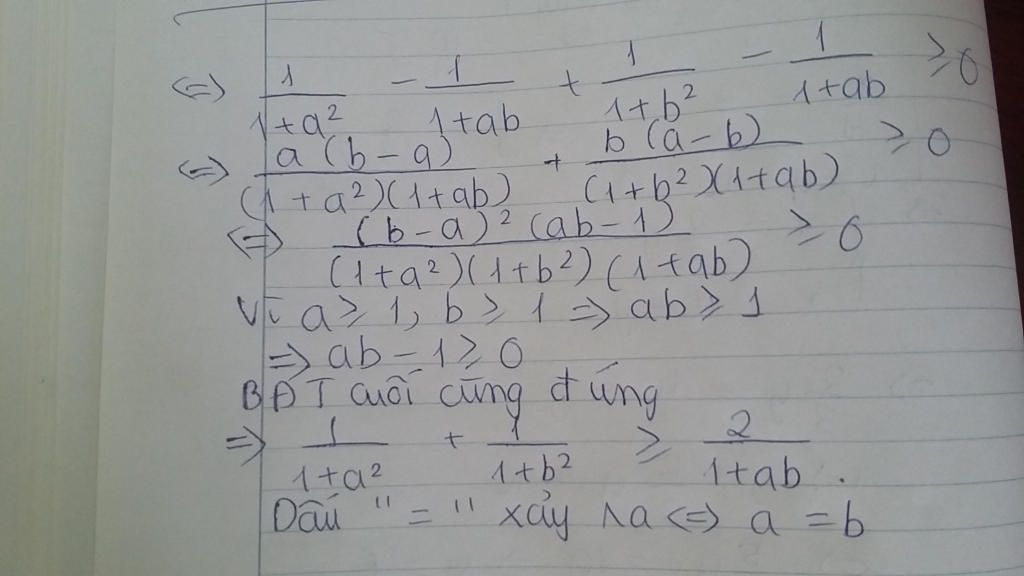 ⇔ 1/(1+a²) − 1/(1+ab) + 1/(1+b²) − 1/(1+ab) ≥ 0
⇔ a(b−a)/((1+a²)(1+ab)) + b(a−b)/((1+b²)(1+ab)) ≥ 0
⇔ (b−a)²(ab−1)/((1+a²)(1+b²)(1+ab)) ≥ 0
Vì a ≥ 1, b ≥ 1 ⇒ ab ≥ 1
⇒ ab − 1 ≥ 0
BĐT cuối cùng đúng
⇒ 1/(1+a²) + 1/(1+b²) ≥ 2/(1+ab).
Dấu " = " xảy ra ⇔ a = b